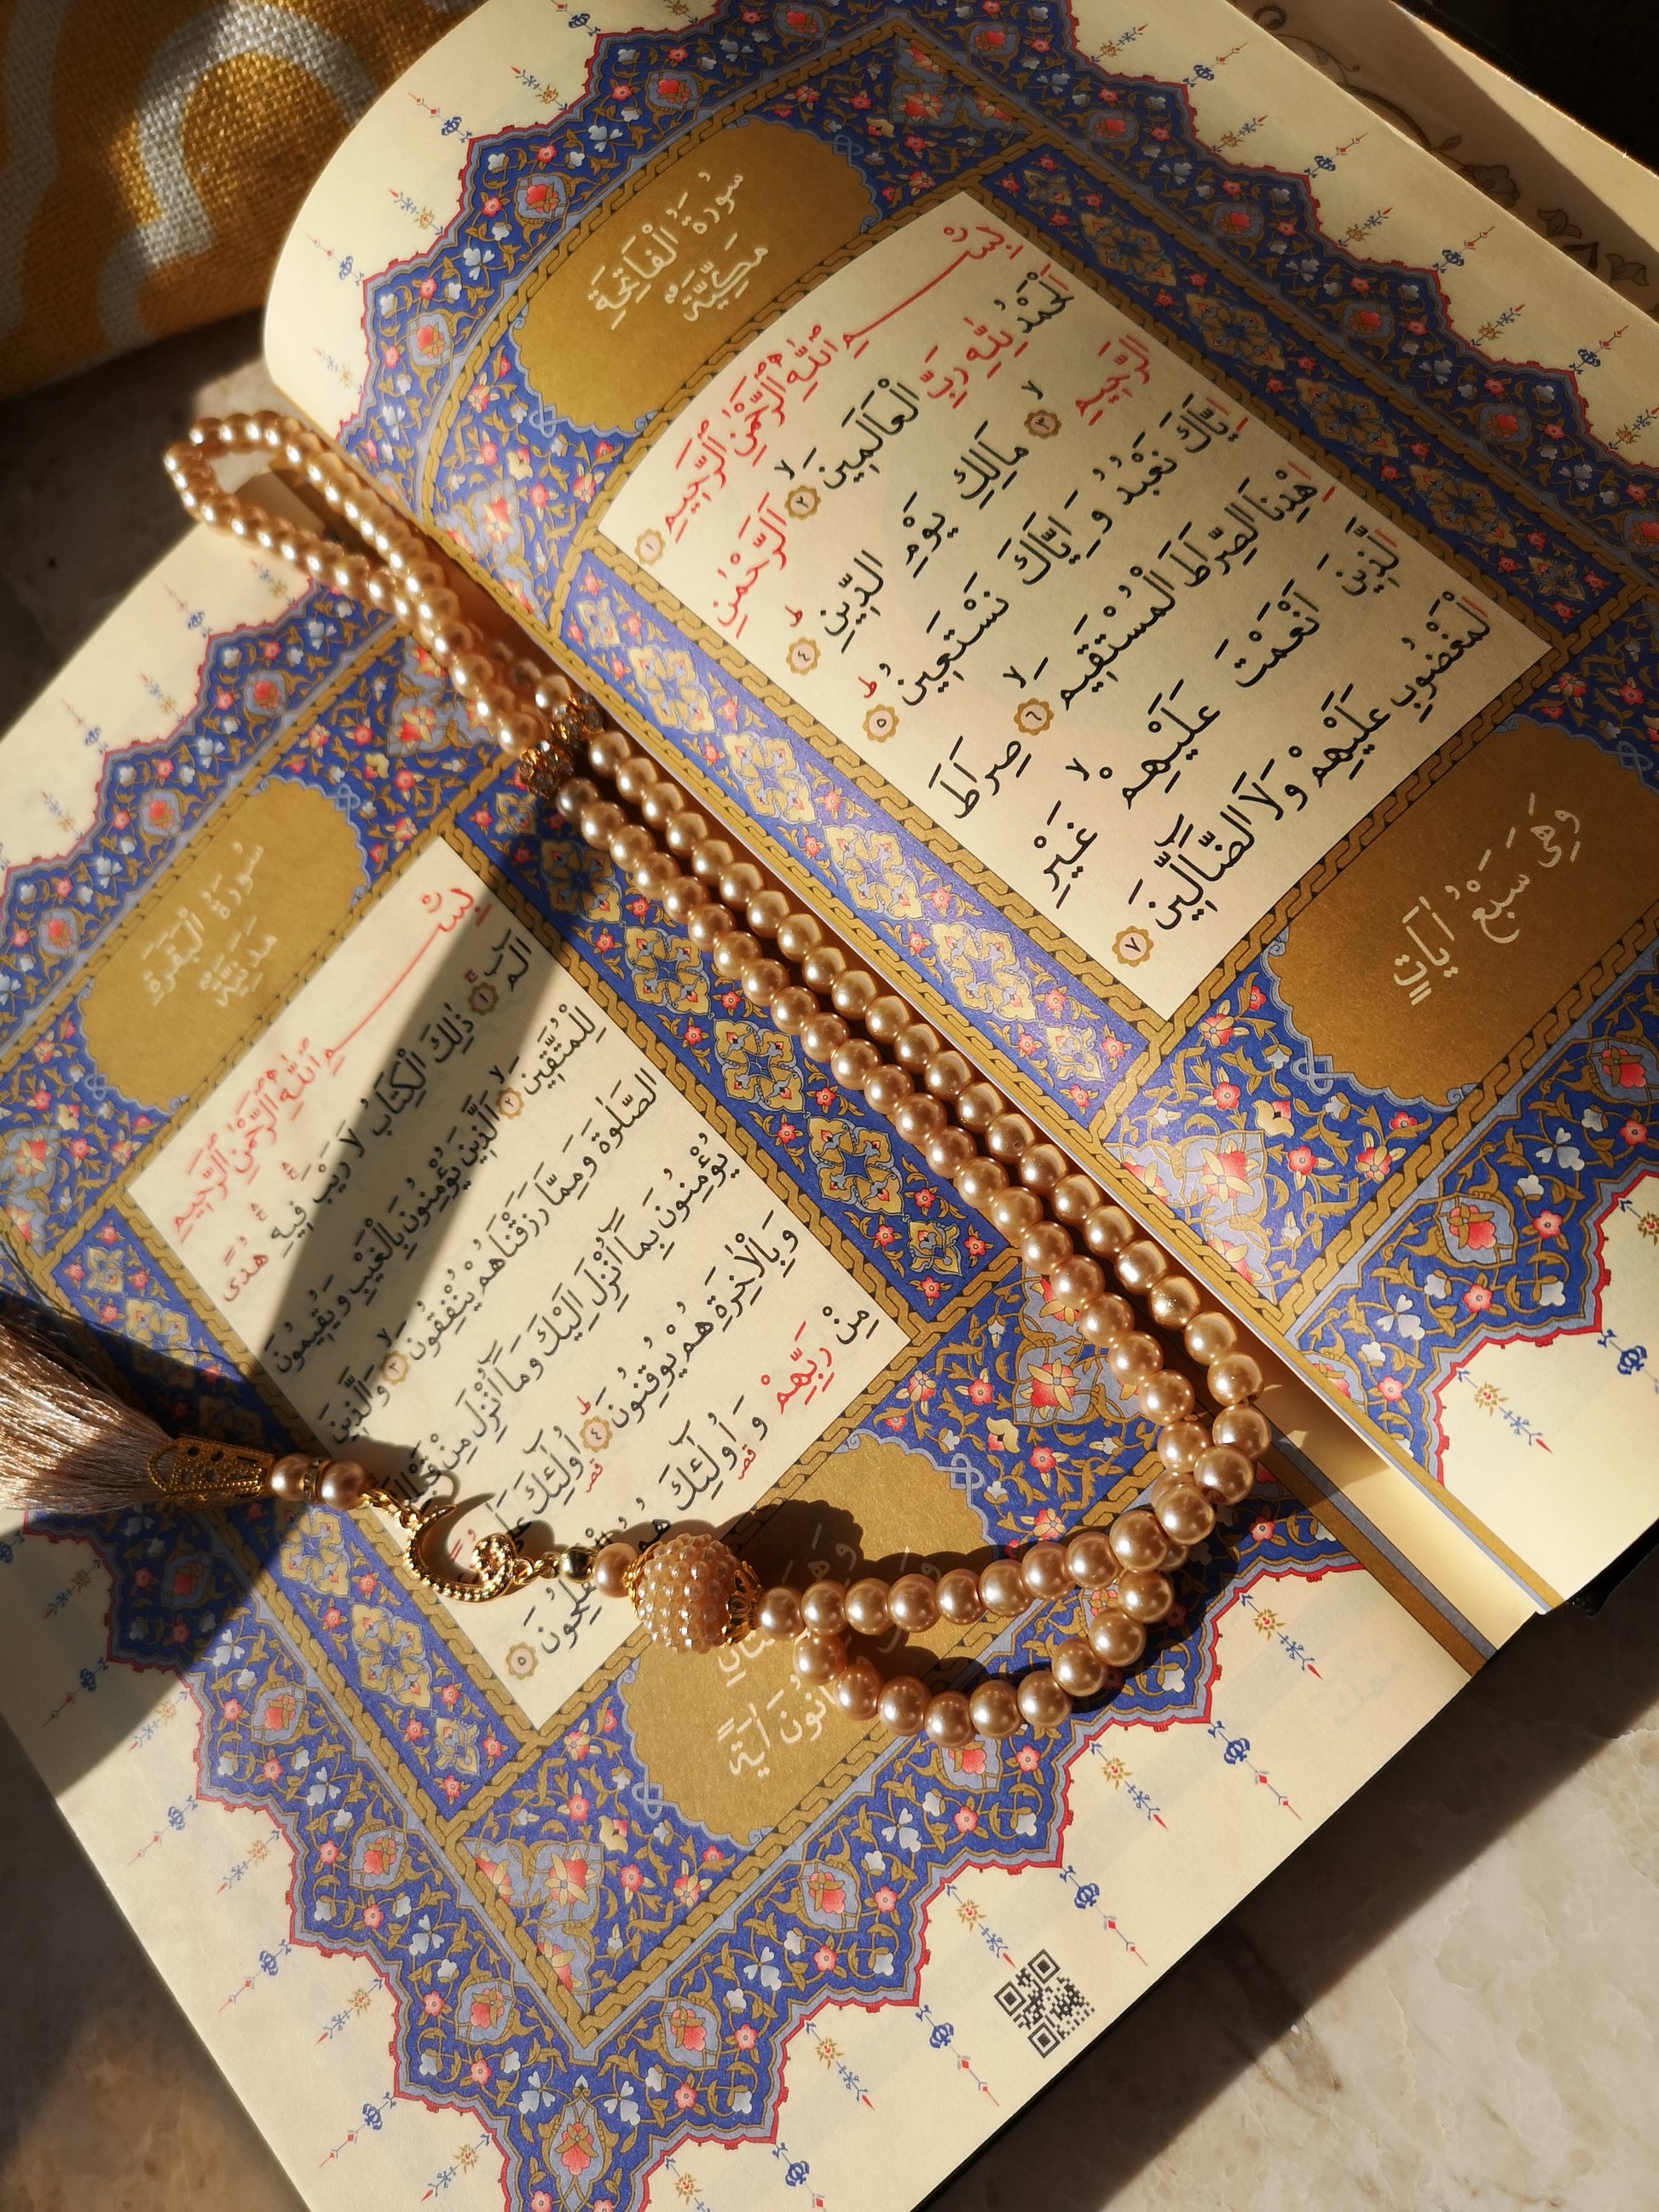 سُورَةُ الْفَاتِحَةِ
مَكِّيَّةٌ
بِسْمِ اللّٰهِ الرَّحْمٰنِ الرَّحِيمِ ١
اَلْحَمْدُ لِلّٰهِ رَبِّ الْعَالَمِينَۙ ٢ اَلرَّحْمٰنِ
الرَّحِيمِۙ ٣ مَالِكِ يَوْمِ الدِّينِۜ ٤
اِيَّاكَ نَعْبُدُ وَاِيَّاكَ نَسْتَعِينُۜ ٥
اِهْدِنَا الصِّرَاطَ الْمُسْتَقِيمَۙ ٦ صِرَاطَ
الَّذِينَ اَنْعَمْتَ عَلَيْهِمْۙ غَيْرِ
الْمَغْضُوبِ عَلَيْهِمْ وَلَا الضَّٓالِّينَ ٧
وَهِيَ سَبْعُ اٰيَاتٍ
سُورَةُ الْبَقَرَةِ
مَدَنِيَّةٌ
بِسْمِ اللّٰهِ الرَّحْمٰنِ الرَّحِيمِ
الٓمٓۚ ١ ذٰلِكَ الْكِتَابُ لَا رَيْبَۚۛ فِيهِۚۛ هُدًى
لِلْمُتَّقِينَۙ ٢ اَلَّذِينَ يُؤْمِنُونَ بِالْغَيْبِ وَيُقِيمُونَ
الصَّلٰوةَ وَمِمَّا رَزَقْنَاهُمْ يُنْفِقُونَۙ ٣ وَالَّذِينَ
يُؤْمِنُونَ بِمَٓا اُنْزِلَ اِلَيْكَ وَمَٓا اُنْزِلَ مِنْ
وَبِالْاٰخِرَةِ هُمْ يُوقِنُونَۜ ٤ اُو۬لٰٓئِكَ
مِنْ رَبِّهِمْ وَاُو۬لٰٓئِكَ هُمُ الْمُفْلِحُونَ ٥
اٰيَةً